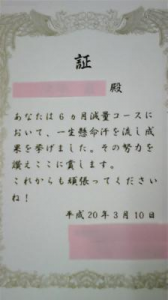 証
殿
あなたは6ヵ月減量コースに
おいて、一生懸命汗を流し成
果を挙げました。その努力を
讃えここに賞します。
これからも頑張ってください
ね！
平成20年3月10日